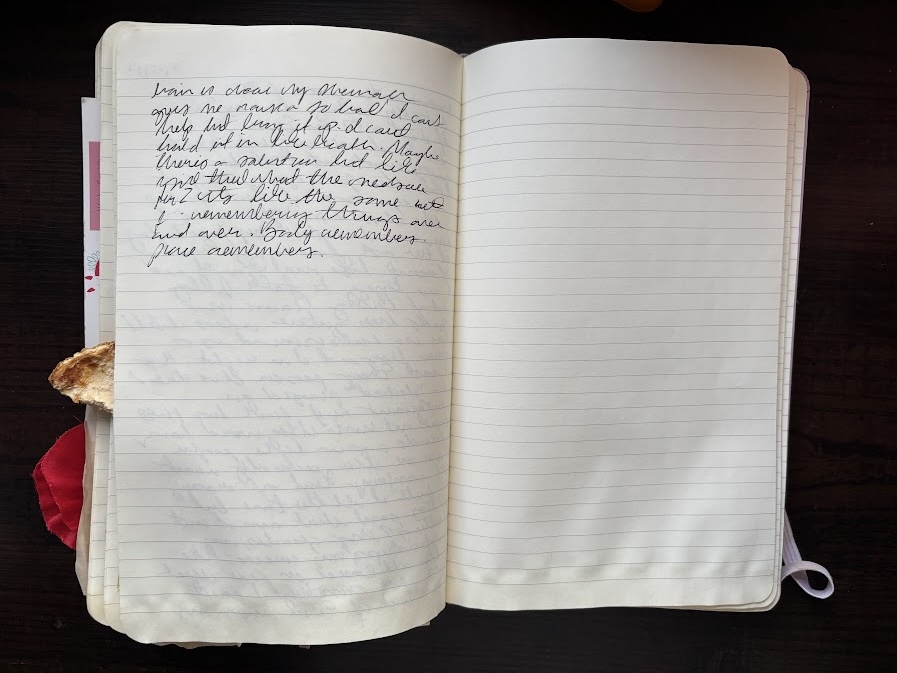 brain is clear my stomach
gives me nausea so bad I can't
help but bring it up. I can't
hold it in like breath. Maybe
there is a solution but like
and that what the
for? its like the same
I remembering things over
and over. Body remembers.
place remembers.